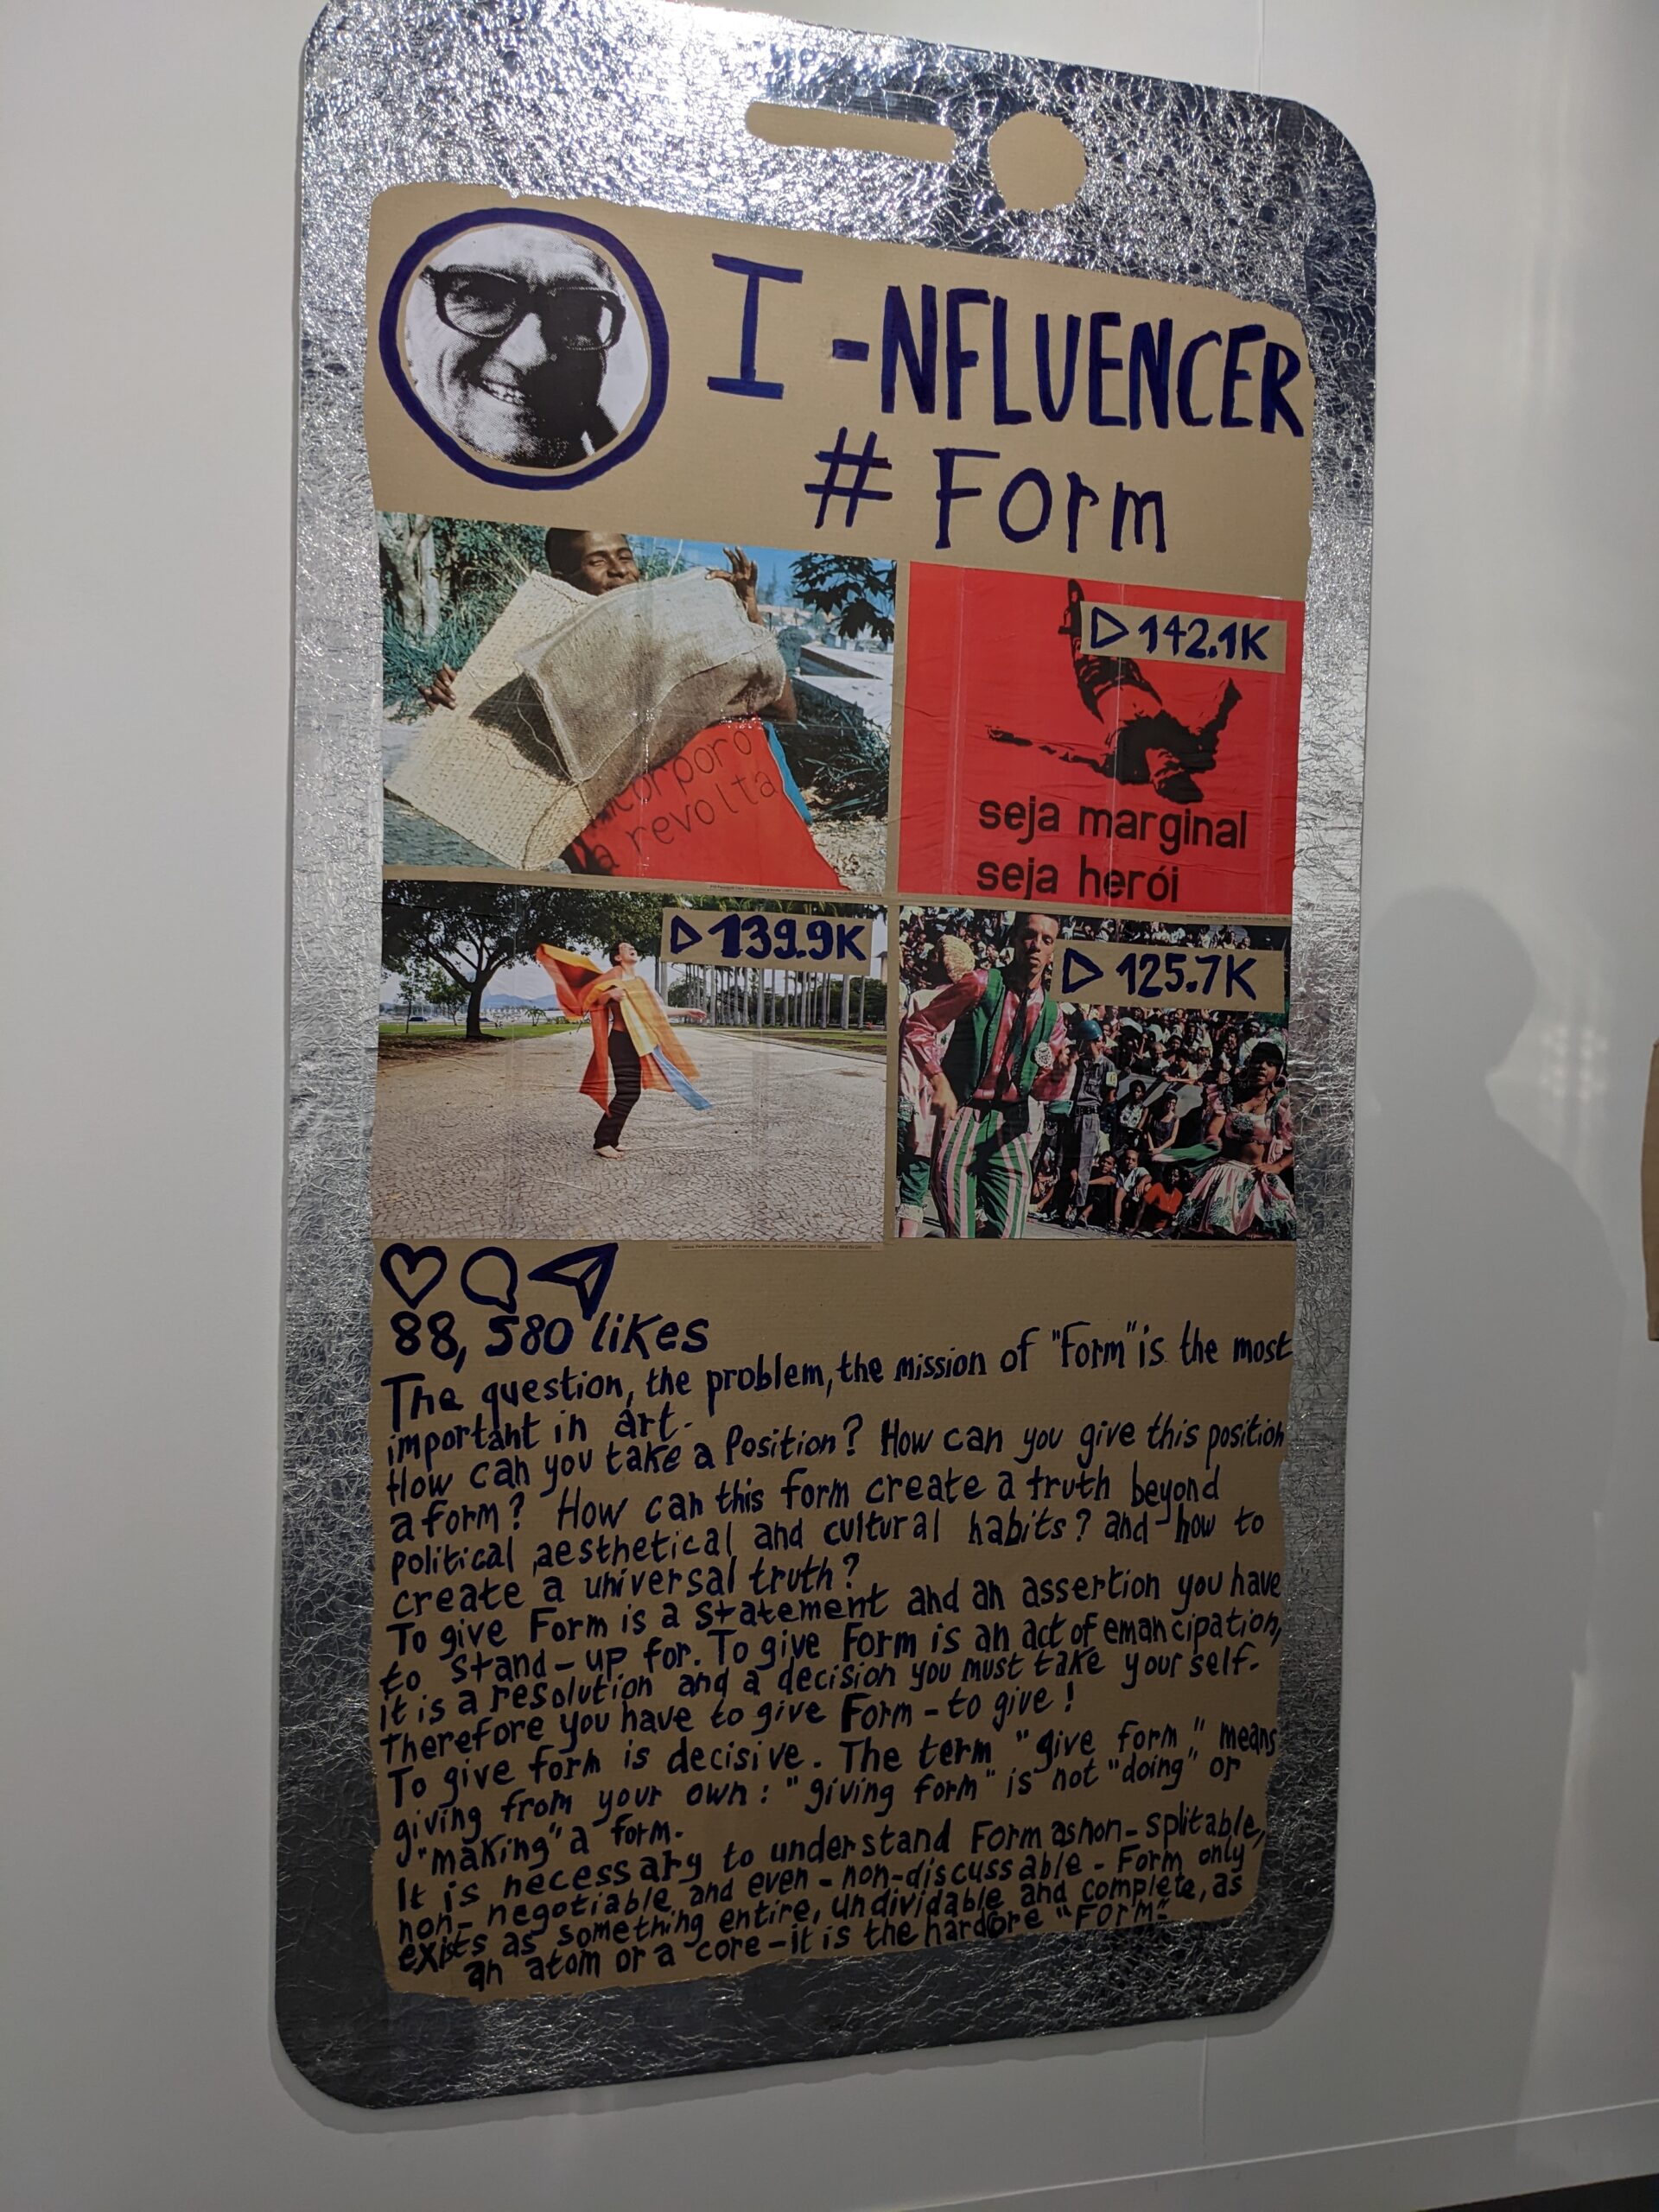 I-NFLUENCER
# Form
incorporo
a revolta
▷142.1K
seja marginal
seja herói
▷139.9K
▷125.7K
88,580 likes
The question, the problem, the mission of "Form" is the most
important in art.
How can you take a Position? How can you give this position
a form? How can this form create a truth beyond
political, aesthetical and cultural habits? and how to
create a universal truth?
To give Form is a statement and an assertion you have
to stand-up for. To give Form is an act of emancipation,
it is a resolution and a decision you must take your self.
Therefore you have to give Form - to give!
To give form is decisive. The term "give form" means
giving from your own: "giving form" is not "doing" or
"making" a form.
It is necessary to understand Form as non-splitable,
non-negotiable and even-non-discussable - Form only
exists as something entire, undividable and complete, as
an atom or a core - it is the hardcore "Form".